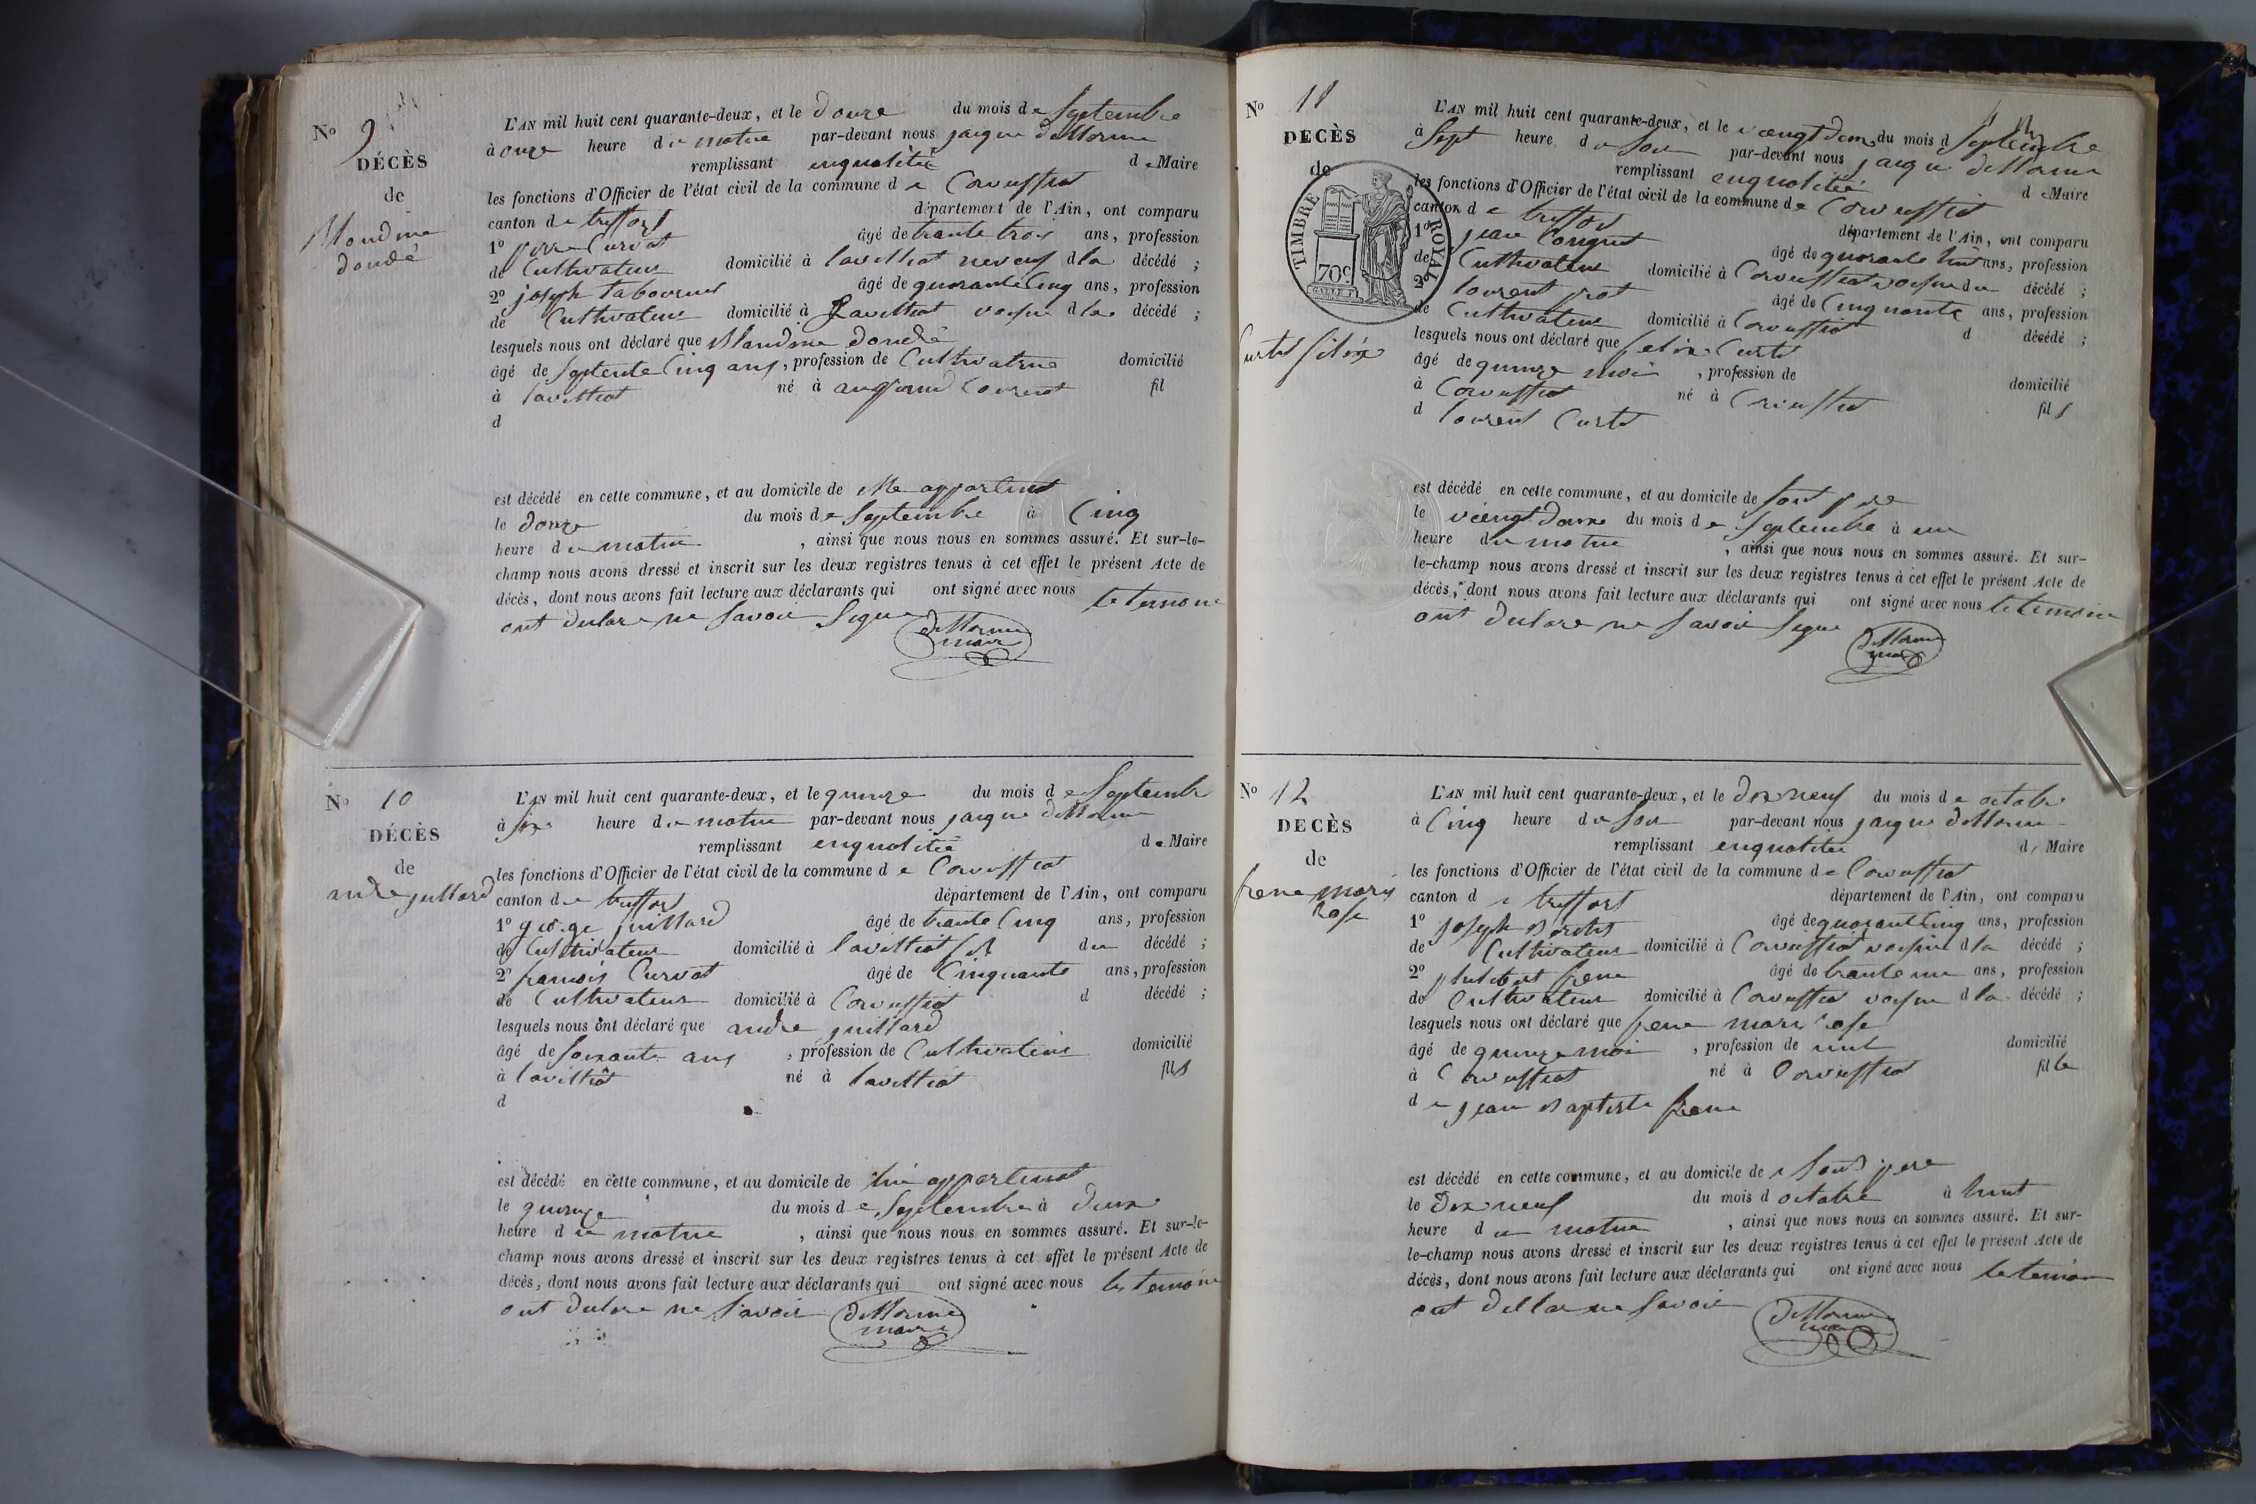 No 9
DÉCÈS
de
Claudine
dondé
L'AN mil huit cent quarante-deux, et le douze du mois de Septembre
à onze heure du matin par-devant nous jaque dellorme
remplissant enqualitée de Maire
les fonctions d'Officier de l'état civil de la commune de Corveissiat
canton de treffort département de l'Ain, ont comparu
1o pierre Curvat âgé de trante trois ans, profession
de Cultivateur domicilié à lavilliat neveuf d la décédé ;
2o joseph tabouret âgé de quarante Cinq ans, profession
de Cultivateur domicilié à Lavilliat voisin d la décédé ;
lesquels nous ont déclaré que Claudine dondé
âgé de Septente Cinq ans, profession de Cultivatrise domicilié
à lavilliat né à fil
d
est décédé en cette commune, et au domicile de elle appartenet
le douze du mois de Septembre à Cinq
heure du matin, ainsi que nous nous en sommes assuré. Et sur-le-
champ nous avons dressé et inscrit sur les deux registres tenus à cet effet le présent Acte de
décès, dont nous avons fait lecture aux déclarants qui ont signé avec nous le temoin
ont declare ne Savoir Signe
dellorme
maire
No 10
DÉCÈS
de
andre juillard
L'AN mil huit cent quarante-deux, et le quinze du mois de Septembre
à six heure du matin par-devant nous jaque dellorme
remplissant enqualitée de Maire
les fonctions d'Officier de l'état civil de la commune de Corveissiat
canton de treffort département de l'Ain, ont comparu
1o george juillard âgé de trante Cinq ans, profession
de Cultivateur domicilié à lavilliat fils du décédé ;
2o francois Curvat âgé de Cinquante ans, profession
de Cultivateur domicilié à Corveissiat d décédé ;
lesquels nous ont déclaré que andre juillard
âgé de Soixante ans, profession de Cultivateur domicilié
à lavilliat né à lavilliat fils
d
est décédé en cette commune, et au domicile de lui appartenet
le quinze du mois de Septembre à deux
heure du matin, ainsi que nous nous en sommes assuré. Et sur-le-
champ nous avons dressé et inscrit sur les deux registres tenus à cet effet le présent Acte de
décès, dont nous avons fait lecture aux déclarants qui ont signé avec nous les temoin
ont declare ne Savoir
dellorme
maire
No 11
DECÈS
de
TIMBRE ROYAL
70c
Curtet felix
L'AN mil huit cent quarante-deux, et le veengt deux du mois d Septembre
à Sept heure du Soir par-devant nous jaque dellorme
remplissant enqualitée de Maire
les fonctions d'Officier de l'état civil de la commune de Corveissiat
canton de treffort département de l'Ain, ont comparu
1o jean âgé de quarante huit ans, profession
de Cultivateur domicilié à Corveissiat voisin du décédé ;
2o lourent prot âgé de Cinquante ans, profession
de Cultivateur domicilié à Corveissiat d décédé ;
lesquels nous ont déclaré que felix Curtet
âgé de quinze moi, profession de domicilié
à Corveissiat né à Corveissiat fils
d lourent Curtet
est décédé en cette commune, et au domicile de Sont pere
le veengt deuxe du mois de Septembre à un
heure du matin, ainsi que nous nous en sommes assuré. Et sur-
le-champ nous avons dressé et inscrit sur les deux registres tenus à cet effet le présent Acte de
décès, dont nous avons fait lecture aux déclarants qui ont signé avec nous le temoin
ont declare ne Savoir Signe
dellorme
maire
No 12
DECÈS
de
frene marie
Rose
L'AN mil huit cent quarante-deux, et le dix neuf du mois de octobre
à Cinq heure du Soir par-devant nous jaque dellorme
remplissant enqualitée d Maire
les fonctions d'Officier de l'état civil de la commune de Corveissiat
canton de treffort département de l'Ain, ont comparu
1o joseph âgé de quarant Cinq ans, profession
de Cultivateur domicilié à Corveissiat voisin d la décédé ;
2o philibert frene âgé de trante un ans, profession
de Cultivateur domicilié à Corveissiat voisin d la décédé ;
lesquels nous ont déclaré que frene marie rose
âgé de quinze moi, profession de nul domicilié
à Corveissiat né à Corveissiat fille
de jean Baptiste frene
est décédé en cette commune, et au domicile de Sont pere
le dix neuf du mois d octobre à huit
heure du matin, ainsi que nous nous en sommes assuré. Et sur-
le-champ nous avons dressé et inscrit sur les deux registres tenus à cet effet le présent Acte de
décès, dont nous avons fait lecture aux déclarants qui ont signé avec nous le temoin
ont dellare ne Savoir
dellorme
maire